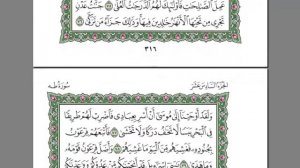 عَمِلَ ٱلصَّٰلِحَٰتِ فَأُو۟لَٰٓئِكَ لَهُمُ ٱلدَّرَجَٰتُ ٱلْعُلَىٰ ۝ جَنَّٰتُ عَدْنٍ
تَجْرِى مِن تَحْتِهَا ٱلْأَنْهَٰرُ خَٰلِدِينَ فِيهَا وَذَٰلِكَ جَزَآءُ مَن تَزَكَّىٰ ۝
٣١٦
الجزء السادس عشر
سورة طه
وَلَقَدْ أَوْحَيْنَآ إِلَىٰ مُوسَىٰٓ أَنْ أَسْرِ بِعِبَادِى فَٱضْرِبْ لَهُمْ طَرِيقًا
فِى ٱلْبَحْرِ يَبَسًا لَّا تَخَٰفُ دَرَكًا وَلَا تَخْشَىٰ ۝ فَأَتْبَعَهُمْ فِرْعَوْنُ
بِجُنُودِهِۦ فَغَشِيَهُم مِّنَ ٱلْيَمِّ مَا غَشِيَهُمْ ۝ وَأَضَلَّ فِرْعَوْنُ قَوْمَهُۥ
وَمَا هَدَىٰ ۝ يَٰبَنِىٓ إِسْرَٰٓءِيلَ قَدْ أَنجَيْنَٰكُم مِّنْ عَدُوِّكُمْ وَوَٰعَدْنَٰكُمْ